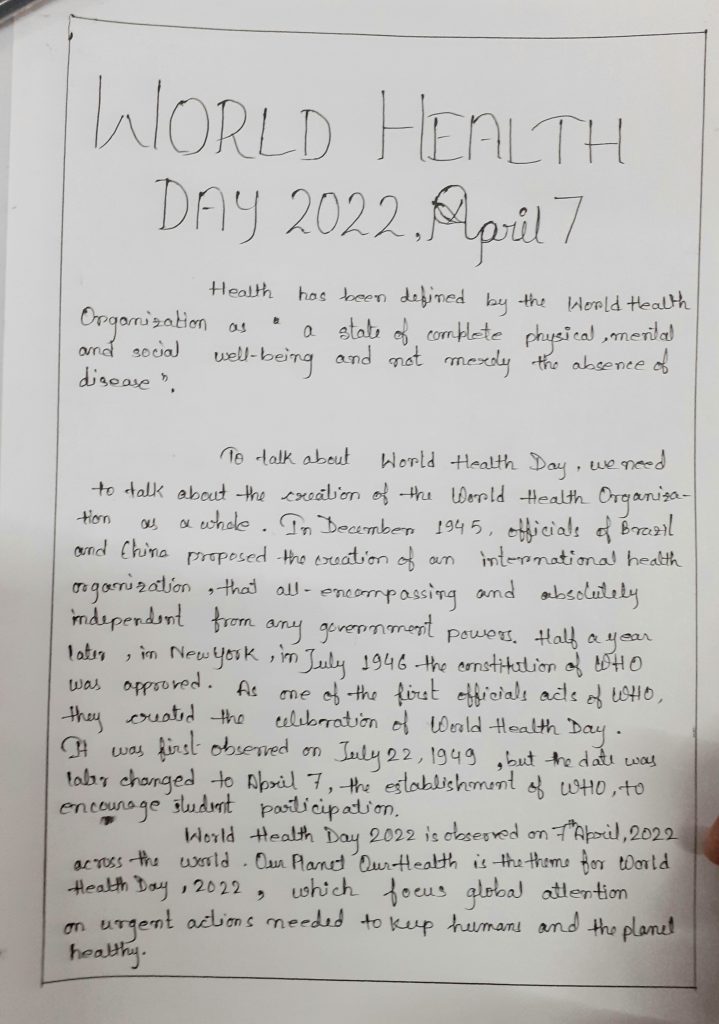 WORLD HEALTH
DAY 2022, April 7
Health has been defined by the World Health
Organization as " a state of complete physical, mental
and social well-being and not merely the absence of
disease".
To talk about World Health Day, we need
to talk about the creation of the World Health Organiza-
tion as a whole. In December 1945, officials of Brazil
and China proposed the creation of an international health
organization, that all-encompassing and absolutely
independent from any government powers. Half a year
later, in New york, in July 1946 the constitution of WHO
was approved. As one of the first officials acts of WHO,
they created the celiberation of World Health Day.
It was first observed on July 22, 1949, but the date was
later changed to April 7, the establishment of WHO, to
encourage student participation.
World Health Day 2022 is observed on 7th April, 2022
across the world. Our Planet Our Health is the theme for World
Health Day, 2022, which focus global attention
on urgent actions needed to keep humans and the planet
healthy.